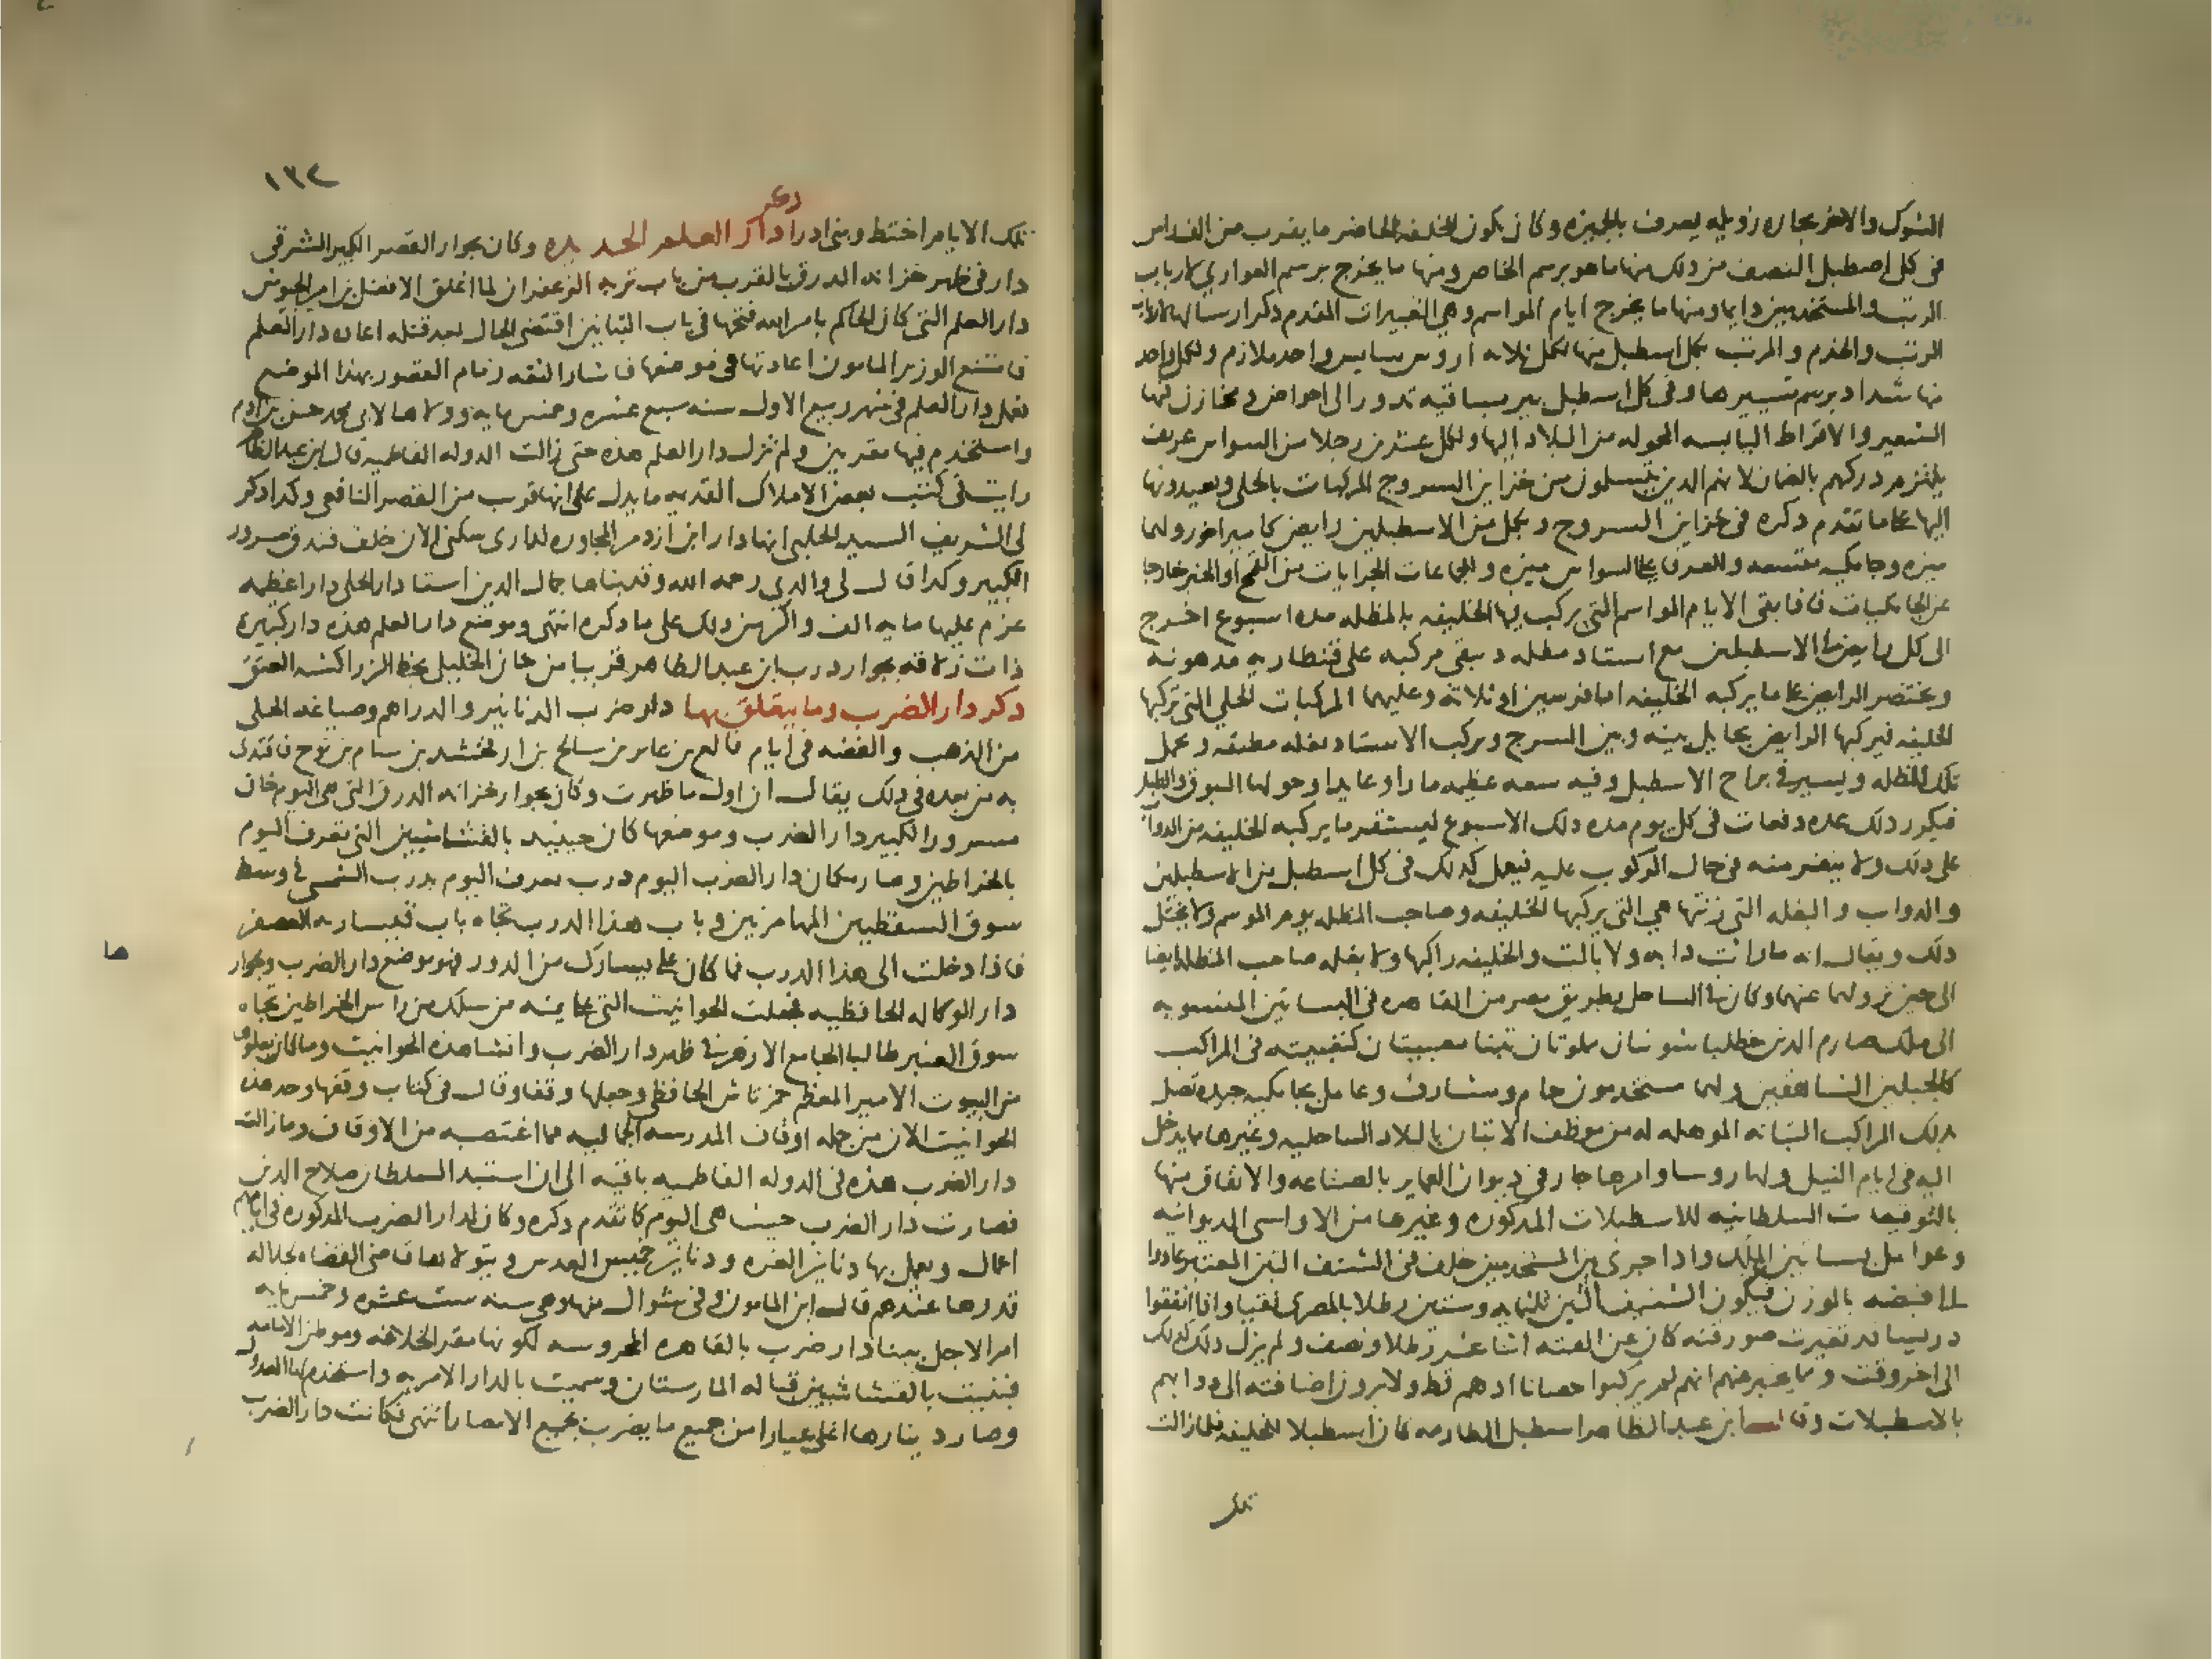 الشوك والاخر بحاره زويله يعرف بالجيزه وكان يكون للخليفه الحاضر ما يقرب من الف راس
فى كل اصطبل النصف من ذلك منها ما هو برسم الخاص ومنها ما يخرج برسم العوارى لارباب
الرتب والمستخدمين دايما ومنها ما يخرج ايام المواسم وهى التغييرات المقدم ذكر ارسالها لارباب
الرتب والخدم والمرتب بكل اسطبل منها لكل ثلاثه اروس سايس واحد ملازم ولكل واحد
منها شداد برسم تسييرها وفى كل اسطبل بير بساقيه تدور الى احواض ومخازن فيها
الشعير والاقراط اليابسه المحموله من البلاد اليها ولكل عشرين رجلا من السواس عريف
يلتزم دركهم بالضمان لانهم الذين يتسلمون من خزاين السروج المركبات بالحلى ويعيدونها
اليها كما تقدم ذكره فى خزاين السروج ولكل من الاسطبلين رايض كامير اخور ولهما
ميزه وجامكيه متسعه وللعرفا على السواس ميزه وللجماعات الجرايات من القمح والخبز خارجا
عن الجامكيات فاذا بقى لايام المواسم التى يركب بها الخليفه بالمظله مده اسبوع اخرج
الى كل رايض من الاسطبلين مع استاد مظله دبيقى مركبه على قنطاريه مدهونه
ويختصر الرايض على ما يركبه الخليفه اما فرسين او ثلاثه وعليهما المركبات الحلى التى يركبها
الخليفه فيركبها الرايض بحايل بينه وبين السرج ويركب الاستاد بغله مظله ويحمل
تلك المظله ويسير فى براح الاسطبل وفيه سعه عظيمه مارا وعايدا وحولها البوق والطبل
فيكرر ذلك عده دفعات فى كل يوم مده ذلك الاسبوع ليستقر ما يركبه الخليفه من الدواب
على ذلك ولا ينفر منه فى حال الركوب عليه فيعمل كذلك فى كل اسطبل من الاسطبلين
والدواب والبغله التى زنتها هى التى يركبها الخليفه وصاحب المظله يوم الموسم ولا يختل
ذلك ويقال انه ما راثت دابه ولا بالت والخليفه راكبها ولا بغله صاحب المظله ايضا
الى حين نزولهما عنهما وكان فى الساحل بطريق مصر من القاهره فى البساتين المنسوبه
الى ملك صارم الدين خطلبا شونتان مملوتان تبنا معبيتان كتعبيته فى المراكب
كالجبلين الشاهقين ولهما مستخدمون حام ومشارف وعامل بجامكيه جيده تصل
بذلك المراكب التبانه الموهله له من موظف الاتبان بالبلاد الساحليه وغيرها مما يدخل
اليه فى ايام النيل ولها روسا وامرها جار فى ديوان العماير بالصناعه والانفاق منها
بالتوقيعات السلطانيه للاسطبلات المذكوره وغيرها من الاواسى الديوانيه
وعوامل بساتين الملك واذا جرى بين المستخدمين خلف فى الشنف التبن المعتبر عادوا
الى قبضه بالوزن فيكون الشنيف التبن ثلثمايه وستين رطلا بالمصرى نقيا واذا انفقوا
دريسا قد تغيرت صورة فته كان عن القته اثنا عشر رطلا ونصف ولم يزل ذلك كذلك
الى اخر وقت ومما يخبر عنهم انهم لم يركبوا حصانا ادهم قط ولا يرون اضافته الى دوابهم
بالاسطبلات وقال ابن عبد الظاهر اسطبل الطارمه كان اسطبلا للخليفه فلما زالت
تلك
١٣٢
تلك الايام اختط وبنى ادرا ذكر دار العلم الجديده وكان بجوار القصر الكبير الشرقى
دار فى ظهر خزانه الدرق بالقرب من باب تربه الزعفران لما اغلق الافضل بن امير الجيوش
دار العلم التى كان الحاكم بامر الله فتحها فى باب التبانين اقتضى الحال بعد قتله اعاده دار العلم
فامتنع الوزير المامون اعادتها فى موضعها فاشار الثقه زمام القصور بهذا الموضع
فعمل دار العلم فى شهر ربيع الاول سنه سبع عشره وخمس مايه وولاها لابى محمد حسن بن ادم
واستخدم فيها مقريين ولم تزل دار العلم هذه حتى زالت الدوله الفاطميه قال ابن عبد الظاهر
رايت فى كتب بعض الاملاك القديمه ما يدل على انها قرب من القصر النافعى وكذا ذكر
لى الشريف السيد الحلبى انها دار ابن ازدمر المجاوره لدارى سكنى الان خلف فندق مسرور
الكبير وكذا قال لى والدى رحمه الله وقد بناها جمال الدين استادار الحلى دارا عظيمه
غرم عليها مايه الف واكثر من ذلك على ما ذكره انتهى وموضع دار العلم هذه دار كبيره
ذات زلاقه بجوار درب ابن عبد الظاهر قريبا من خان الخليلى بخط الزراكشه العتيق
ذكر دار الضرب وما يتعلق بها دار ضرب الدنانير والدراهم وصياغه الحلى
من الذهب والفضه فى ايام فالع بن عابر بن سالح بن ارفخشد بن سام بن نوح فاقتدى
به من بعده فى ذلك يقال ان اول ما ظهرت وكان بجوار خزانه الدرق التى هى اليوم خان
مسرور الكبير دار الضرب وموضعها كان حينيد بالقشاشيين التى تعرف اليوم
بالخراطين وصار مكان دار الضرب اليوم درب يعرف اليوم بدرب الشمسى فى وسط
سوق السقطيين المهامزيين وباب هذا الدرب تجاه باب قيساريه العصفر
فاذا دخلت الى هذا الدرب فما كان على يسارك من الدور فهو موضع دار الضرب وبجوار
دار الوكاله الحافظيه فجعلت الحوانيت التى على يمنه من سلك من راس الخراطين تجاه
سوق العنبر طالبا الجامع الازهر فى ظهر دار الضرب وانشا هذه الحوانيت وما كان يعلوها
من البيوت الامير المعظم خمرتاش الحافظى وجعلها وقفا وقال فى كتاب وقفها وحد هذه
الحوانيت الان من جمله اوقاف المدرسه الجماليه مما اغتصبه من الاوقاف وما زالت
دار الضرب هذه فى الدوله الفاطميه باقيه الى ان استبد السلطان صلاح الدين
فصارت دار الضرب حيث هى اليوم كما تقدم ذكره وكان لدار الضرب المذكوره فى ايامهم
اعمال ويعمل بها دنانير الغره ودنانير خميس العدس ويتولاها قاضى القضاه لجلاله
قدرها عندهم قال ابن المامون وفى شوال منها وهى سنه ست عشره وخمس مايه
امر الاجل ببنا دار ضرب بالقاهره المحروسه لكونها مقر الخلافه وموطن الامامه
فبنيت بالقشاشيين قباله المارستان وسميت بالدار الامريه واستخدم لها العدول
وصار دينارها اعلى عيارا من جميع ما يضرب بجميع الامصار انتهى فكانت دار الضرب
ها